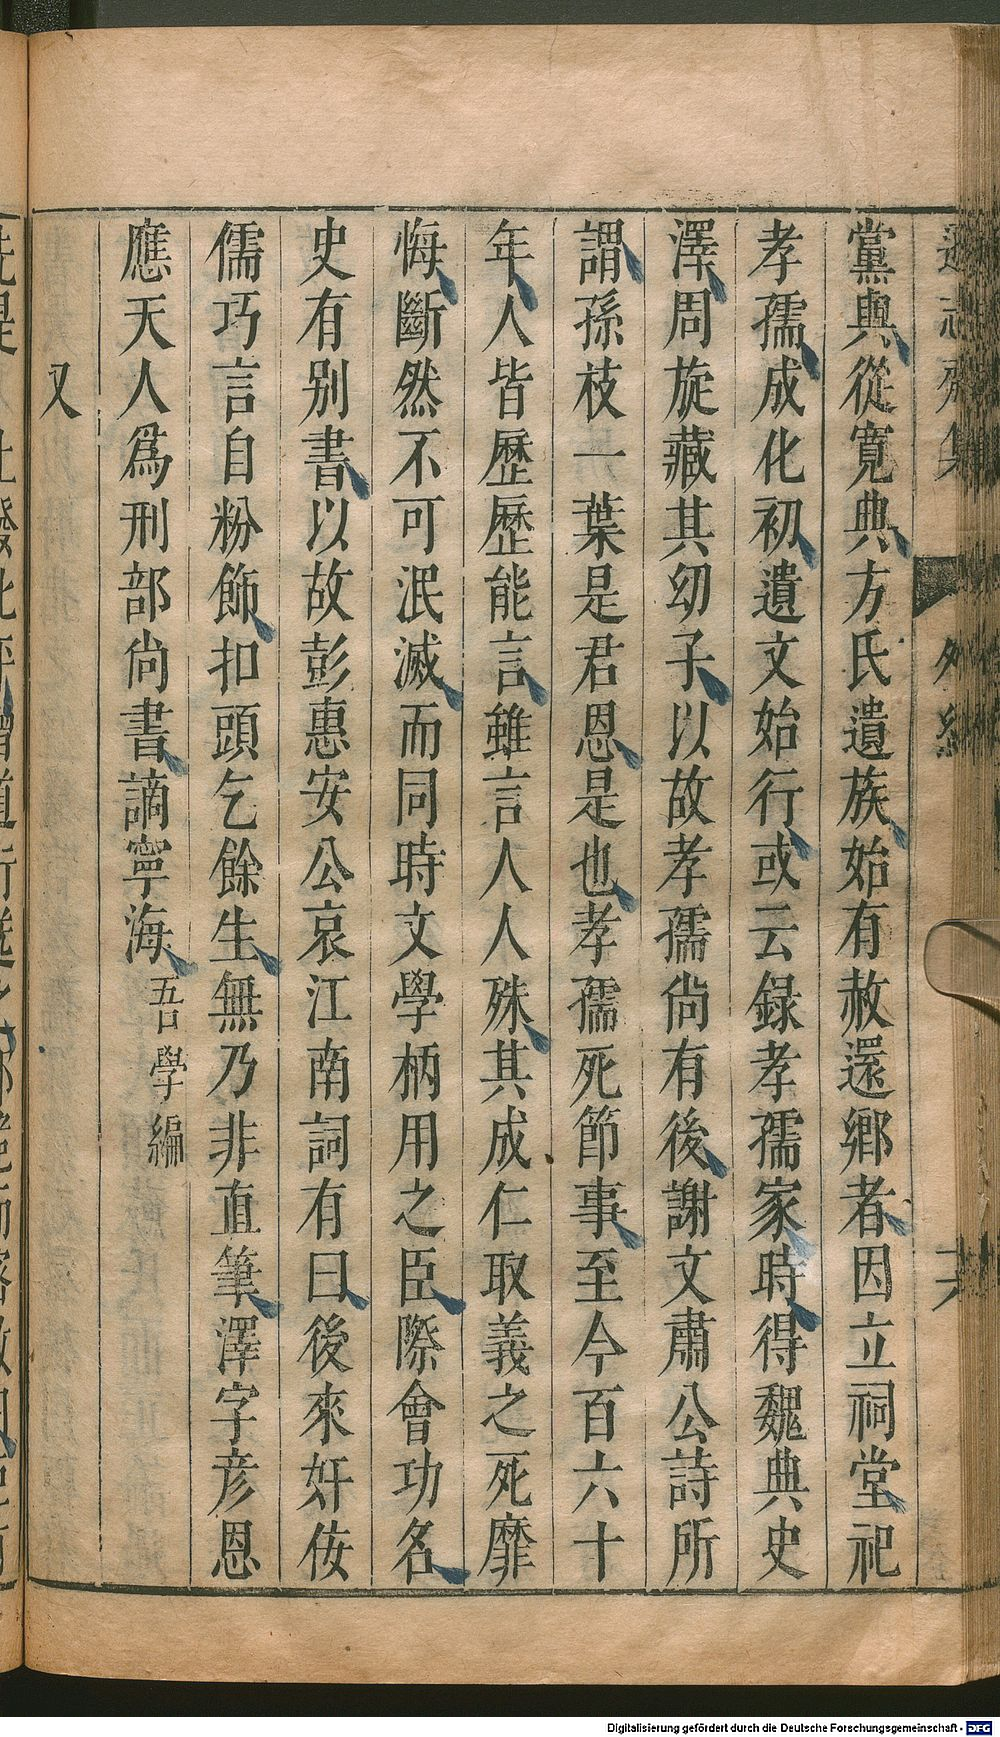 黨輿從寬典方氏遺族始有赦還鄉者因立祠堂祀
孝孺成化初遺文始行或云錄孝孺家時得魏典史
澤周旋藏其幼子以故孝孺尙有後謝文肅公詩所
謂孫枝一葉是君恩是也孝孺死節事至今百六十
年人皆歷歷能言雖言人人殊其成仁取義之死靡
悔斷然不可泯滅而同時文學柄用之臣際會功名
史有別書以故彭惠安公哀江南詞有曰後來奸佞
儒巧言自粉飾扣頭乞餘生無乃非直筆澤字彥恩
應天人爲刑部尙書謫寧海 吾學編
又
Digitalisierung gefördert durch die Deutsche Forschungsgemeinschaft - DFG